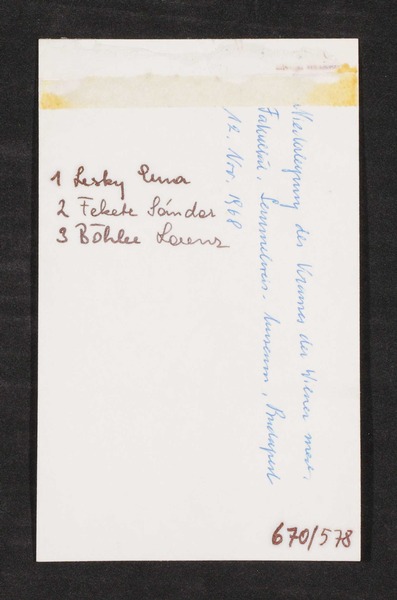 1 Lesky Erna
2 Fekete Sándor
3 Böhler Lorenz
Niederlegung des Kranzes der Wiener med.
Fakultät, Semmelweis-Museum, Budapest
12. Nov. 1968
670/578